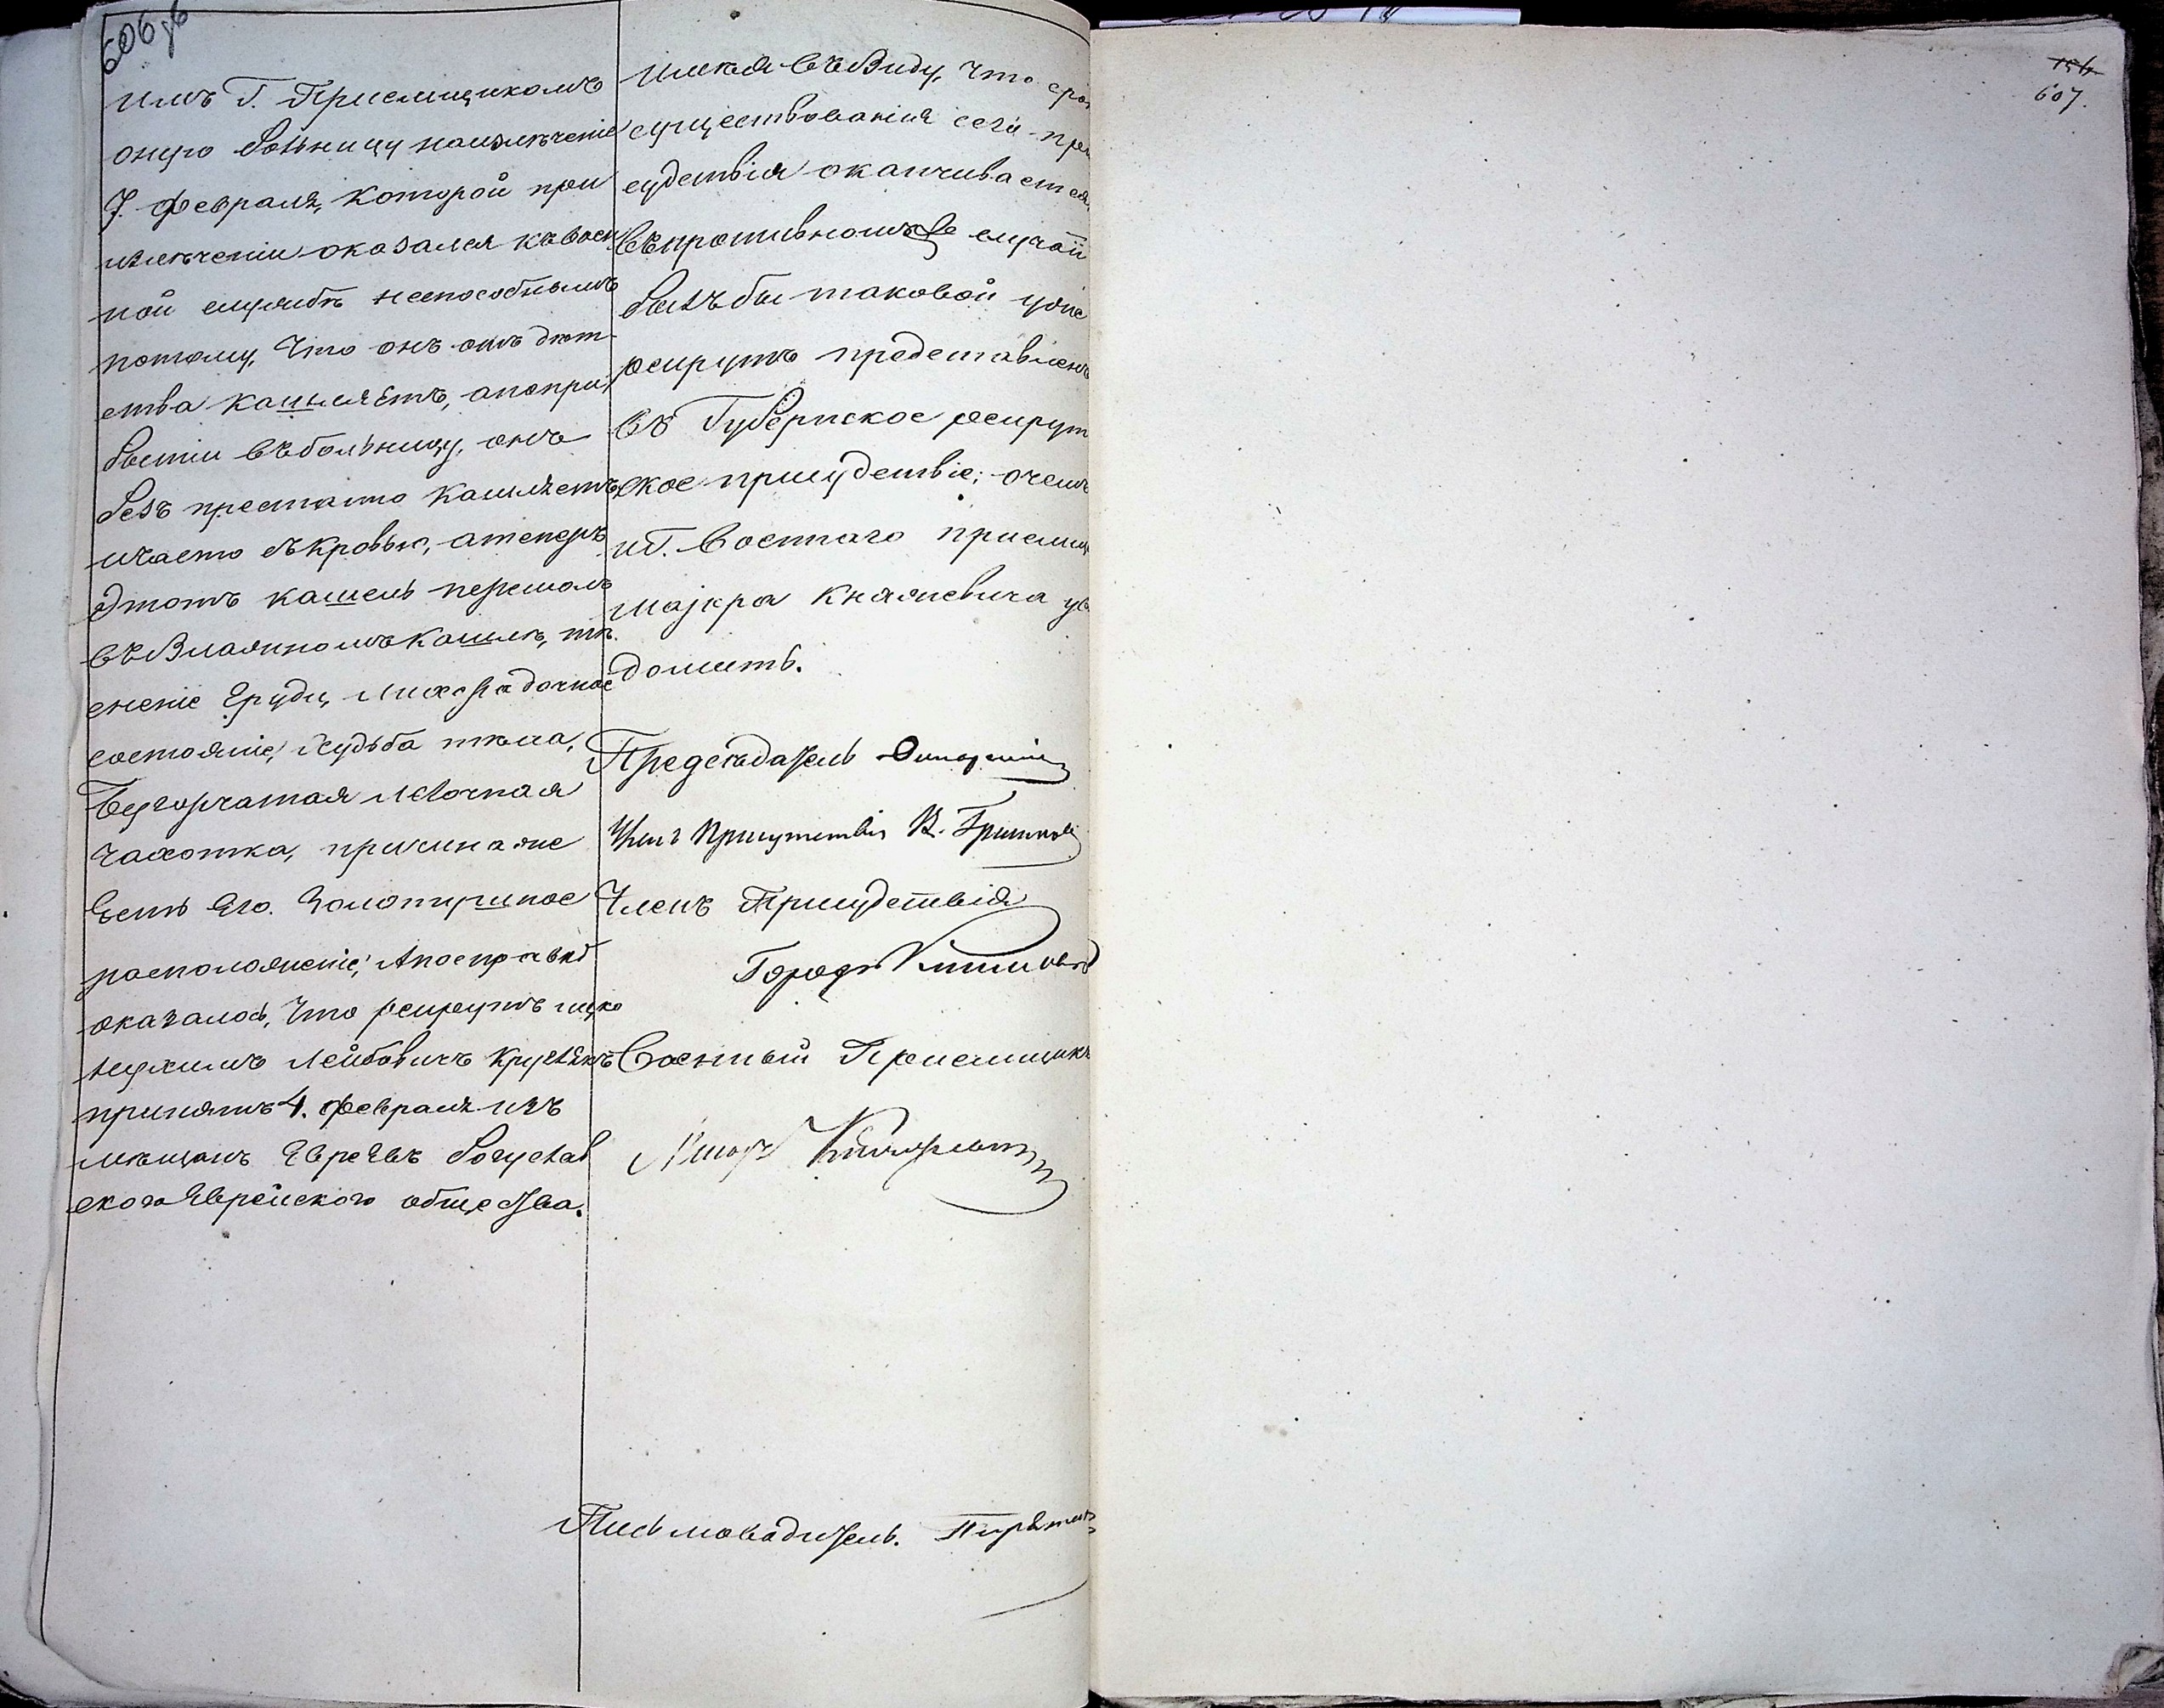 606 об
имъ Г. Приемщикомъ
оную больницу наизлѣченіе
7. Февраля, который при
излѣченіи оказался къвоен
ной службѣ неспособнымъ
потому, что онъ отъ дѣт-
ства кашляетъ, апопри
бытіи въбольницу, онъ
безъ престанно кашляетъ
ичасто съкровью, атеперь
этотъ кашель перешолъ
въ кашль, тѣ
сненіе груди, лихорадочное
состояніе, худьба тѣла,
Бугорчатая легочная
чахотка, причина же
есть его Золотушное
расположеніе; Апосправкѣ
оказалось, что рекрутъ
Лейбовичъ
принятъ 4. Февраля изъ
мѣщанъ Евреевъ Богуслав
скаго Еврейского общества.
Имѣя въВиду, что сро
существованія сего при
судствія оканчивается,
Въпротивномъ случаи
былъ бы таковой уже
рекрутъ представленъ
въ Губернское рекрут
ское присудствіе; очемъ
иГ. Военнаго приемщ
маіора Княжевича ув
домить.
Предсѣдатель
Членъ Присутствія
Членъ Присудствія
Военный Приемщикъ
Письмоводитель.
607.